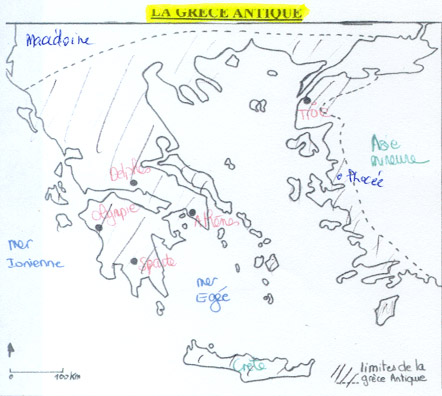 LA GRECE ANTIQUE
Macédoine
Troie
Asie
mineure
Phocée
Delphes
Olympie
Athènes
mer
Ionienne
Sparte
mer
Egée
Crète
100 Km
limites de la
grèce Antique